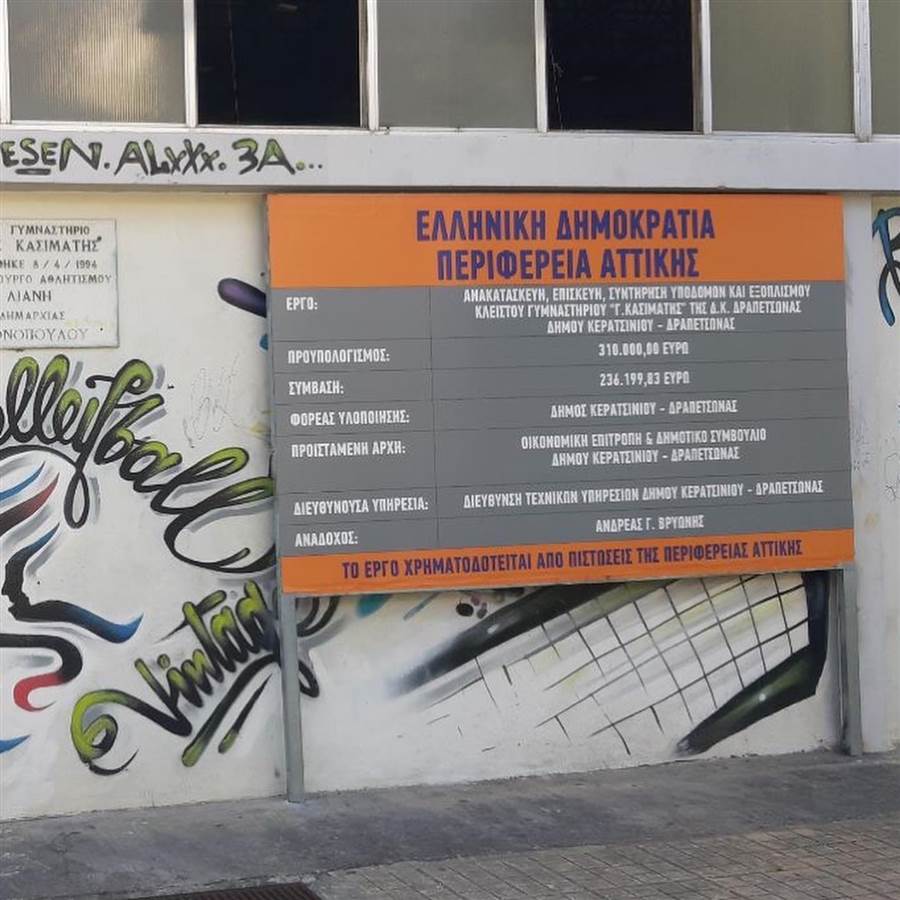 ESEN. ALxxx. 3A...
ΓΥΜΝΑΣΤΗΡΙΟ
ΚΑΣΙΜΑΤΗΣ"
8/4/1994
ΑΘΛΗΤΙΣΜΟΥ
ΛΙΑΝΗ
ΔΗΜΑΡΧΙΑΣ
ΕΛΛΗΝΙΚΗ ΔΗΜΟΚΡΑΤΙΑ
ΠΕΡΙΦΕΡΕΙΑ ΑΤΤΙΚΗΣ
ΕΡΓΟ:
ΑΝΑΚΑΤΑΣΚΕΥΗ, ΕΠΙΣΚΕΥΗ, ΣΥΝΤΗΡΗΣΗ ΥΠΟΔΟΜΩΝ ΚΑΙ ΕΞΟΠΛΙΣΜΟΥ
ΚΛΕΙΣΤΟΥ ΓΥΜΝΑΣΤΗΡΙΟΥ "Γ.ΚΑΣΙΜΑΤΗΣ" ΤΗΣ Δ.Κ. ΔΡΑΠΕΤΣΩΝΑΣ
ΔΗΜΟΥ ΚΕΡΑΤΣΙΝΙΟΥ - ΔΡΑΠΕΤΣΩΝΑΣ
ΠΡΟΥΠΟΛΟΓΙΣΜΟΣ: 310.000,00 ΕΥΡΩ
ΣΥΜΒΑΣΗ: 236.199,83 ΕΥΡΩ
ΦΟΡΕΑΣ ΥΛΟΠΟΙΗΣΗΣ: ΔΗΜΟΣ ΚΕΡΑΤΣΙΝΙΟΥ - ΔΡΑΠΕΤΣΩΝΑΣ
ΠΡΟΙΣΤΑΜΕΝΗ ΑΡΧΗ: ΟΙΚΟΝΟΜΙΚΗ ΕΠΙΤΡΟΠΗ & ΔΗΜΟΤΙΚΟ ΣΥΜΒΟΥΛΙΟ
ΔΗΜΟΥ ΚΕΡΑΤΣΙΝΙΟΥ - ΔΡΑΠΕΤΣΩΝΑΣ
ΔΙΕΥΘΥΝΟΥΣΑ ΥΠΗΡΕΣΙΑ: ΔΙΕΥΘΥΝΣΗ ΤΕΧΝΙΚΩΝ ΥΠΗΡΕΣΙΩΝ ΔΗΜΟΥ ΚΕΡΑΤΣΙΝΙΟΥ - ΔΡΑΠΕΤΣΩΝΑΣ
ΑΝΑΔΟΧΟΣ: ΑΝΔΡΕΑΣ Γ. ΒΡΥΩΝΗΣ
ΤΟ ΕΡΓΟ ΧΡΗΜΑΤΟΔΟΤΕΙΤΑΙ ΑΠΟ ΠΙΣΤΩΣΕΙΣ ΤΗΣ ΠΕΡΙΦΕΡΕΙΑΣ ΑΤΤΙΚΗΣ